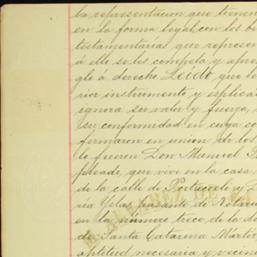 la representacion que tienen
en la forma legal con los be
testamentarias que represen
á ello se les compela y apre
gle á derecho Leido que le
rior instrumento y esplica
ignora su valor y fuerza,
su conformidad en cuyo co
firmaron en union de los
lo fueron Don Manuel
pleado, que vive en la casa
de la calle de
ria pasante de Notario
en la número trece de la
de Santa Catarina Martir
aptitud necesaria y vecin